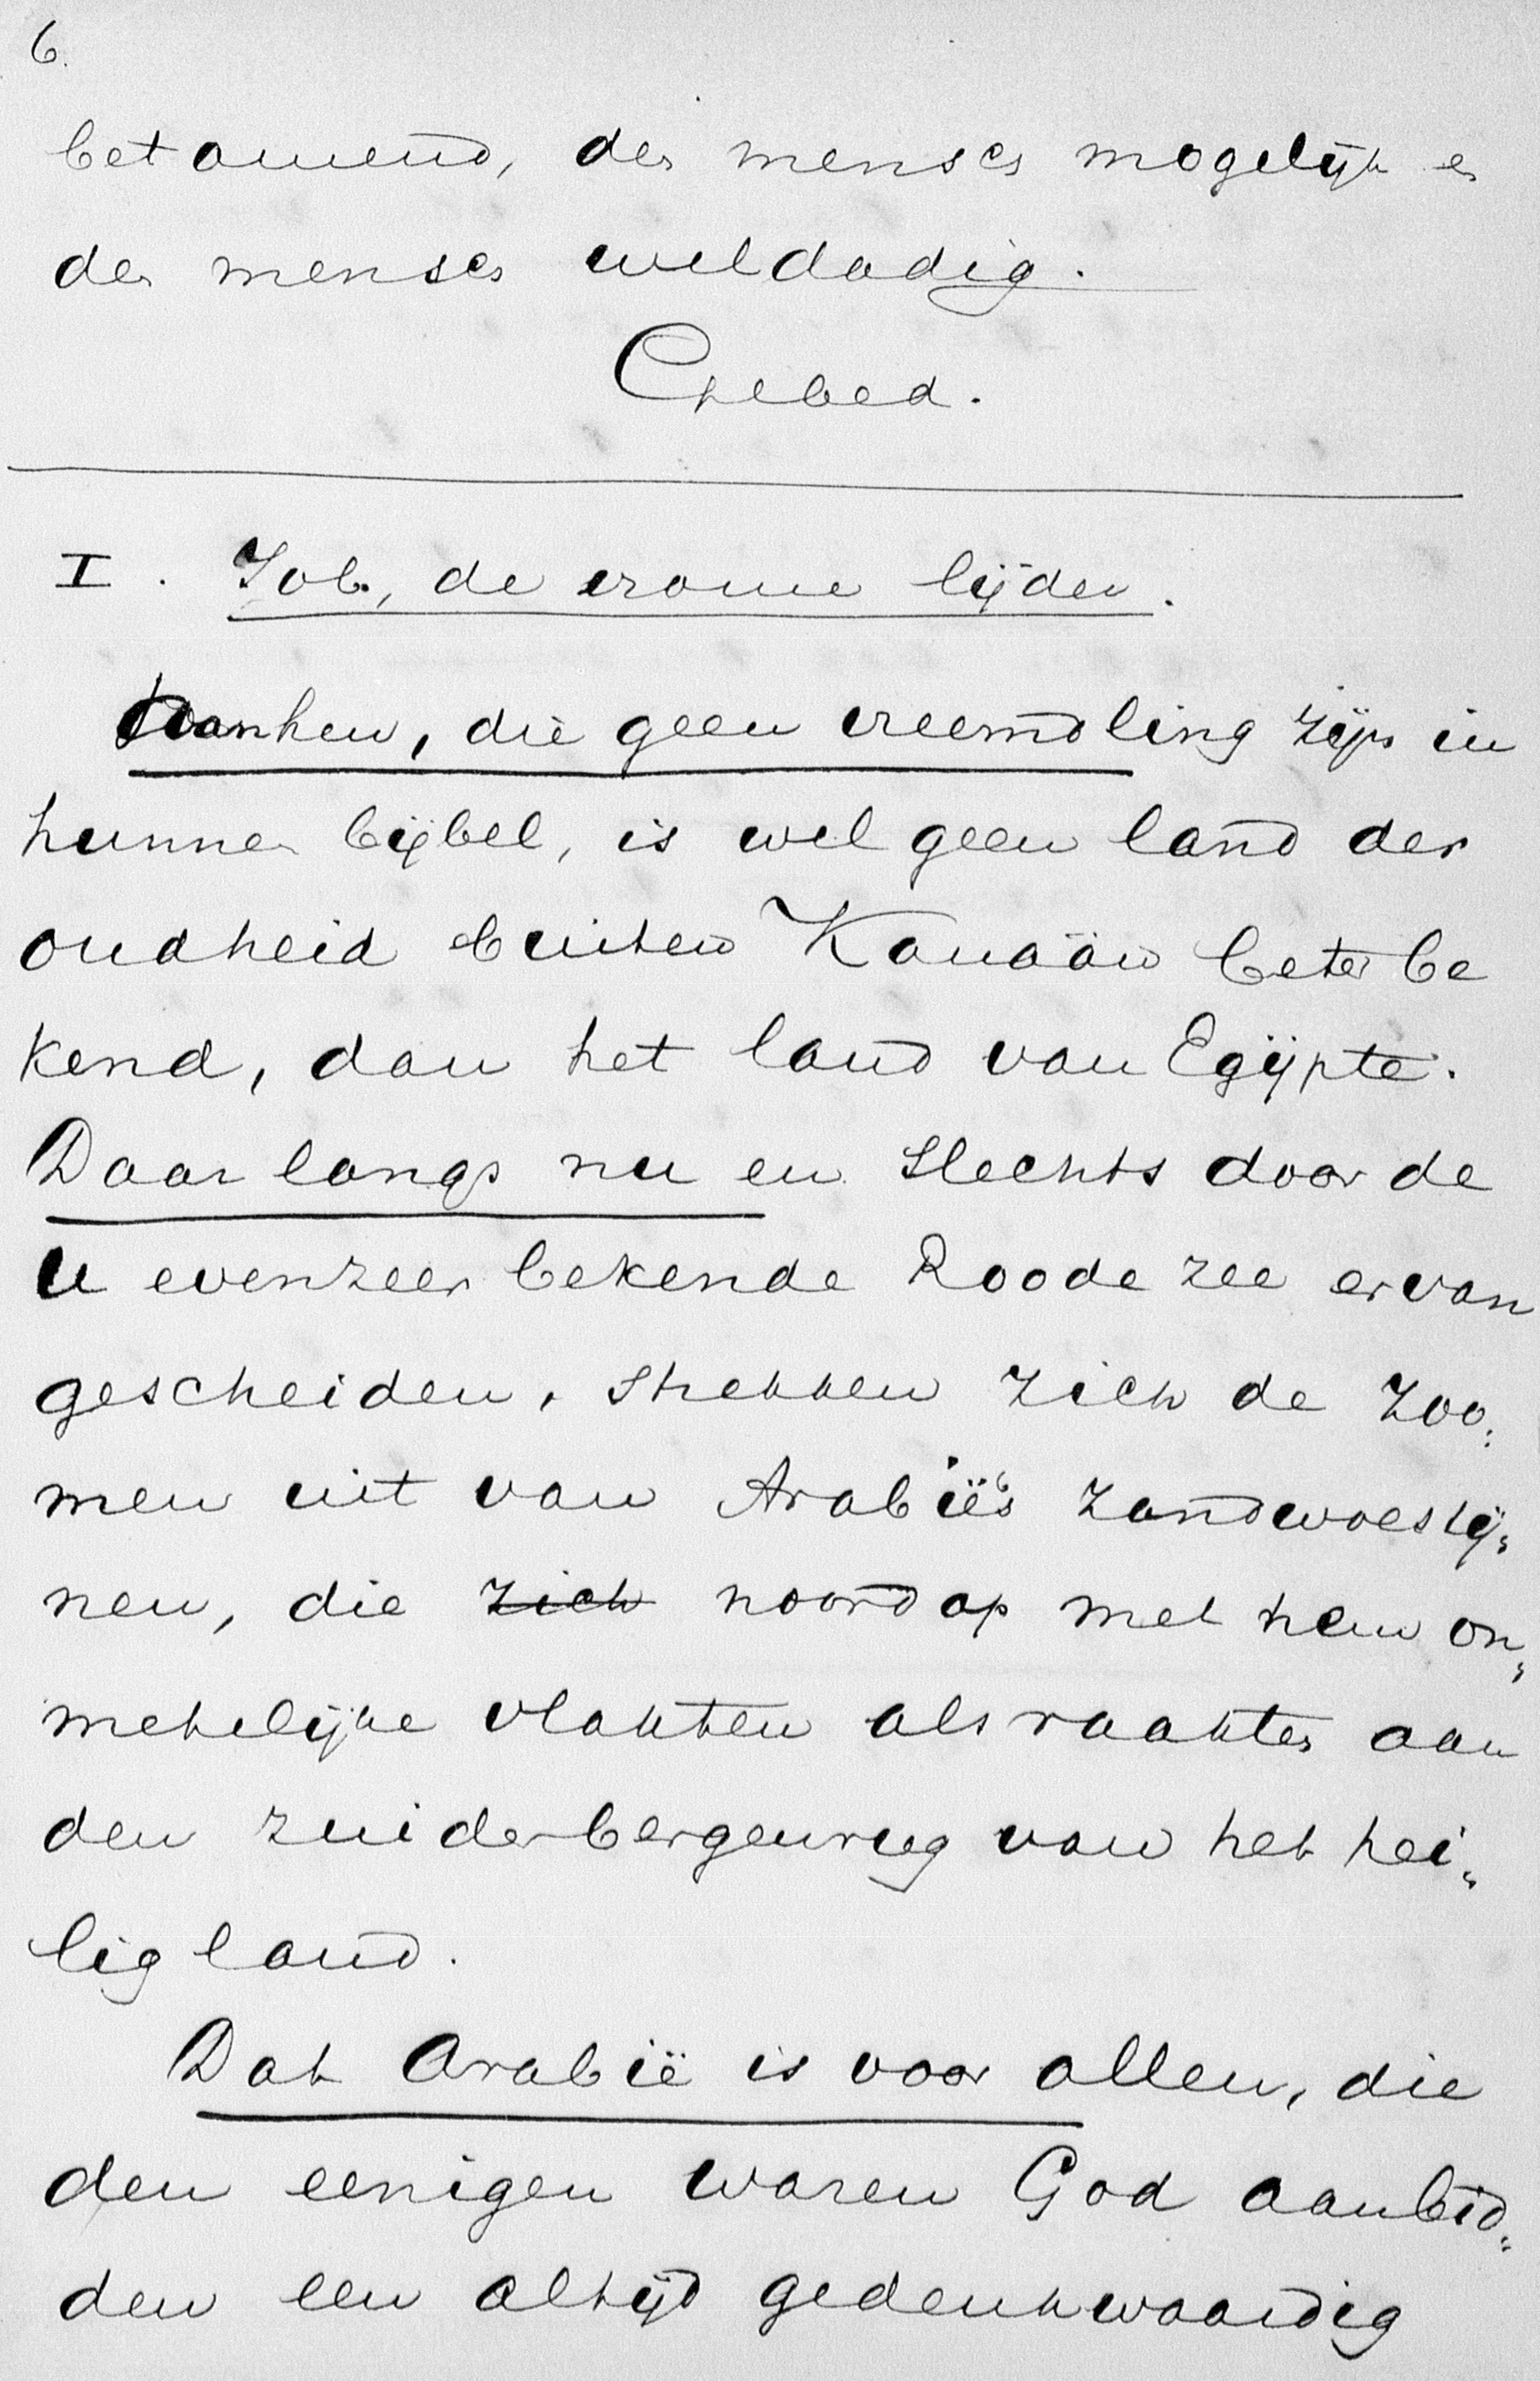 6.
betamend, den mensch mogelijk en
den mensch weldadig.
Gebed.
I. Job, de vrome lijder.
die geen vreemdeling zijn in
hunnen bijbel, is wel geen land der
oudheid buiten Kanaän beter be
kend, dan het land van Egijpte.
Daar langs nu en slechts door de
u evenzeer bekende Roode zee ervan
gescheiden, strekken zich de zoo„
men uit van Arabië's zandwoestij„
nen, die zich noordop met hun on„
metelijke vlakten als raakten aan
den zuiderbergenrug van het hei„
lig land.
Dat Arabië is voor allen, die
den eenigen waren God aanbid„
den een altijd gedenkwaardig